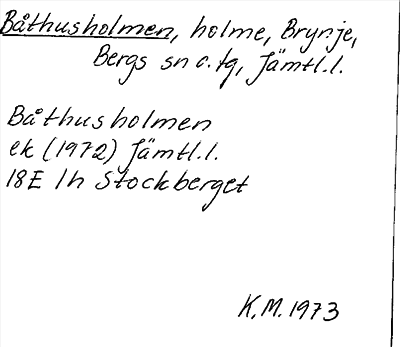 Båthusholmen, holme, Brynje,
Bergs sn o. tg, Jämtl.l.
Båthusholmen
ek (1972) Jämtl.l.
18E 1h Stockberget
K.M. 1973